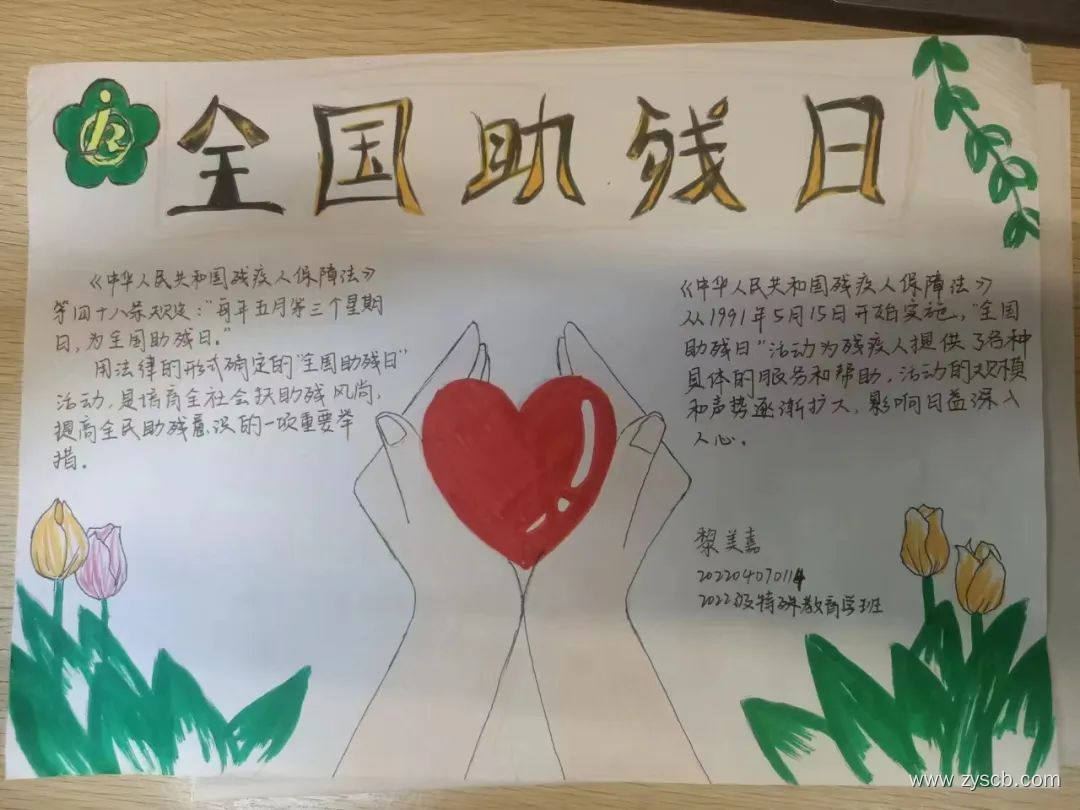 全国助残日
《中华人民共和国残疾人保障法》
第四十八条规定："每年五月第三个星期
日，为全国助残日。"
用法律的形式确定的"全国助残日"
活动，是培育全社会扶助残风尚，
提高全民助残意识的一项重要举
措。
《中华人民共和国残疾人保障法》
从1991年5月15日开始实施，"全国
助残日"活动为残疾人提供了各种
具体的服务和帮助，活动的规模
和声势逐渐扩大，影响日益深入
人心。
黎美嘉
202204070114
2022级特殊教育学班
www.zyscb.com